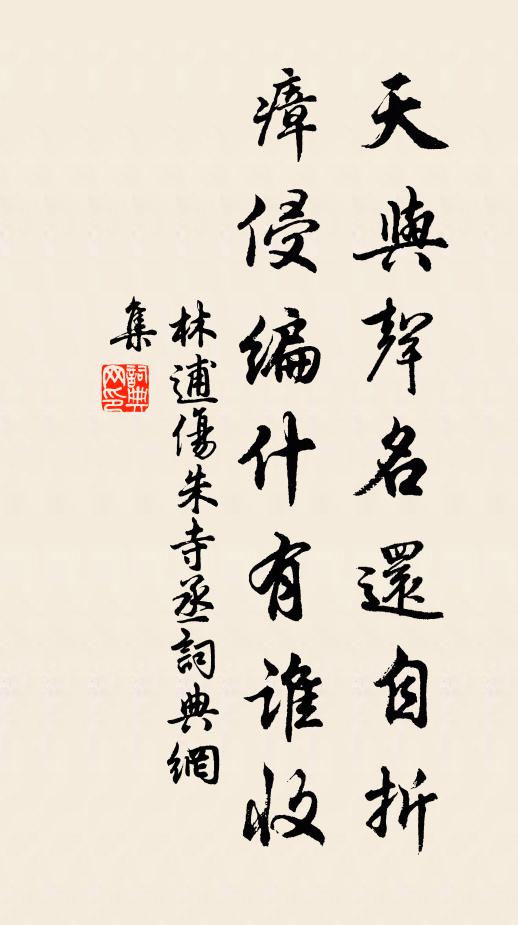 天與聲名還自折
瘴侵編什有誰收
林逋傷朱寺丞詞典網
集
詞典
网印